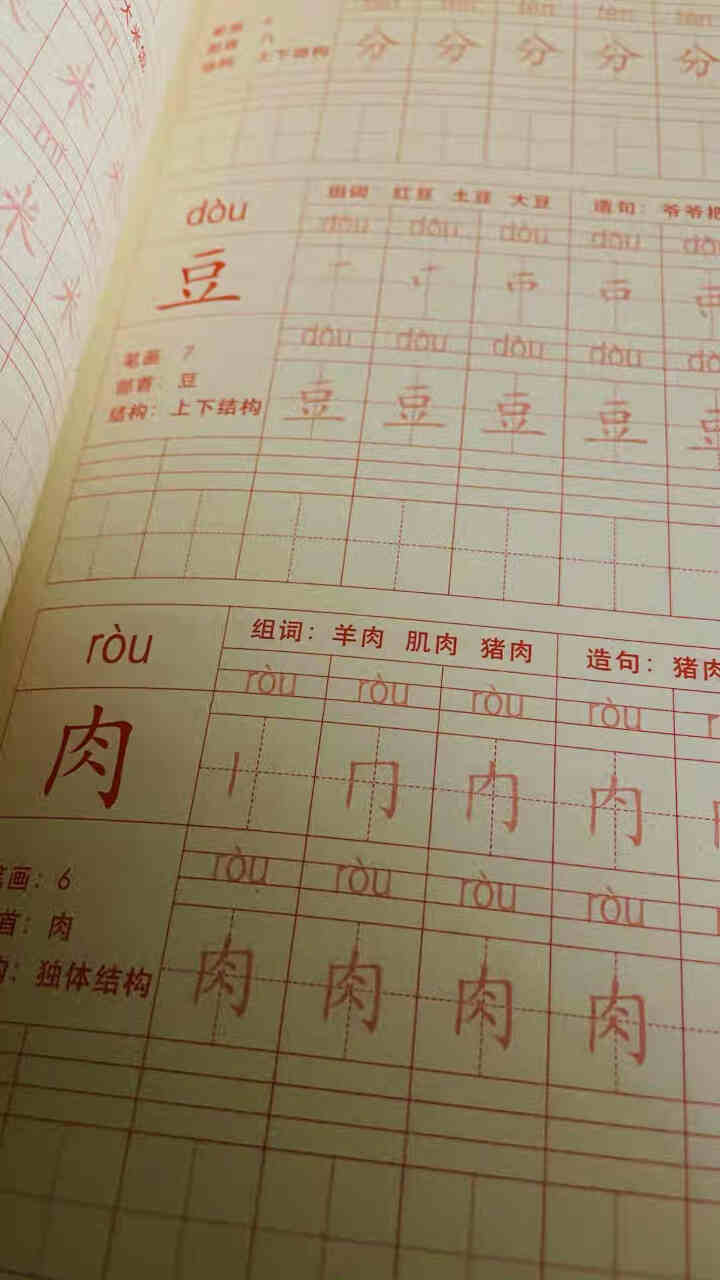 分 分 分 分 分
上下结构
dòu
组词 红豆 土豆 大豆
造句：爷爷把
dòu dòu dòu dòu dò
豆
笔画 7
部首：豆
结构：上下结构
dòu dòu dòu dòu dò
豆 豆 豆 豆
ròu
组词：羊肉 肌肉 猪肉
造句：猪肉
ròu ròu ròu ròu r
肉
丨 冂 内 肉
笔画：6
首：肉
构：独体结构
ròu ròu ròu ròu
肉 肉 肉 肉
米
米